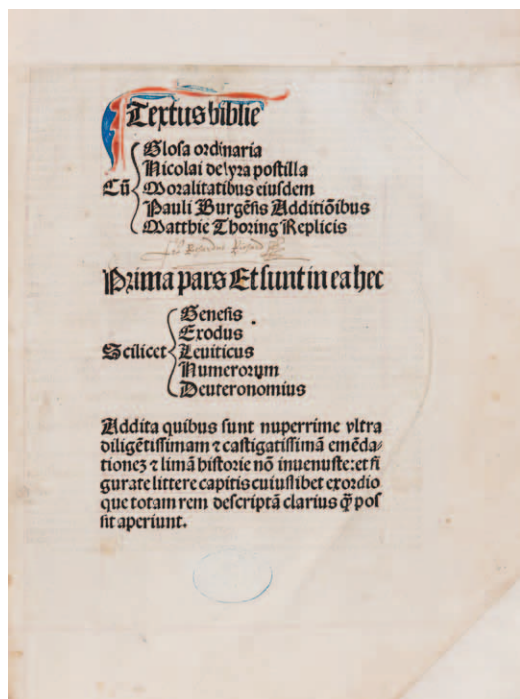 Textus biblie
Glosa ordinaria
Nicolai de lyra postilla
Cū Moralitatibus eiusdem
Pauli Burgēsis Additiōibus
Matthie Thoring Replicis
Prima pars Et sunt in ea hec
Genesis
Exodus
Scilicet Leuiticus
Numerorum
Deuteronomius
Addita quibus sunt nuperrime vltra
diligētissimam ⁊ castigatissimā emēda⸗
tionez ⁊ limā historie nō inuenuste: et fi
gurate littere capitis cuiuslibet exordio
que totam rem descriptā clarius q̄ꝫ pos
sit aperiunt.